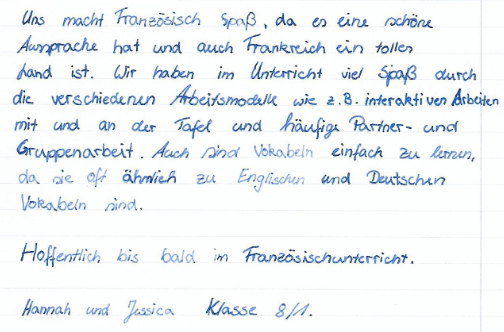 Uns macht Französisch Spaß, da es eine schöne
Aussprache hat und auch Frankreich ein tolles
Land ist. Wir haben im Unterricht viel Spaß durch
die verschiedenen Arbeitsmodelle wie z.B. interaktiven Arbeiten
mit und an der Tafel und häufige Partner- und
Gruppenarbeit. Auch sind Vokabeln einfach zu lernen,
da sie oft ähnlich zu Englischen und Deutschen
Vokabeln sind.
Hoffentlich bis bald im Französischunterricht.
Hannah und Jessica Klasse 8/1.